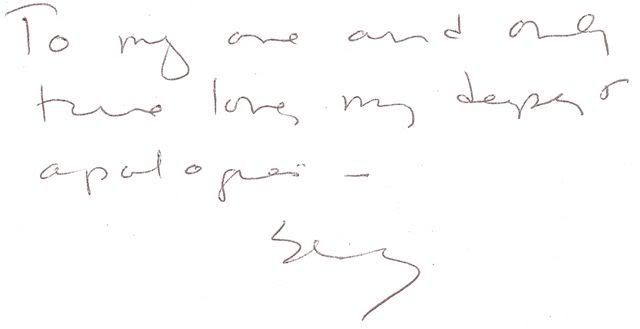 To my one and only
true love, my deepest
apologies –